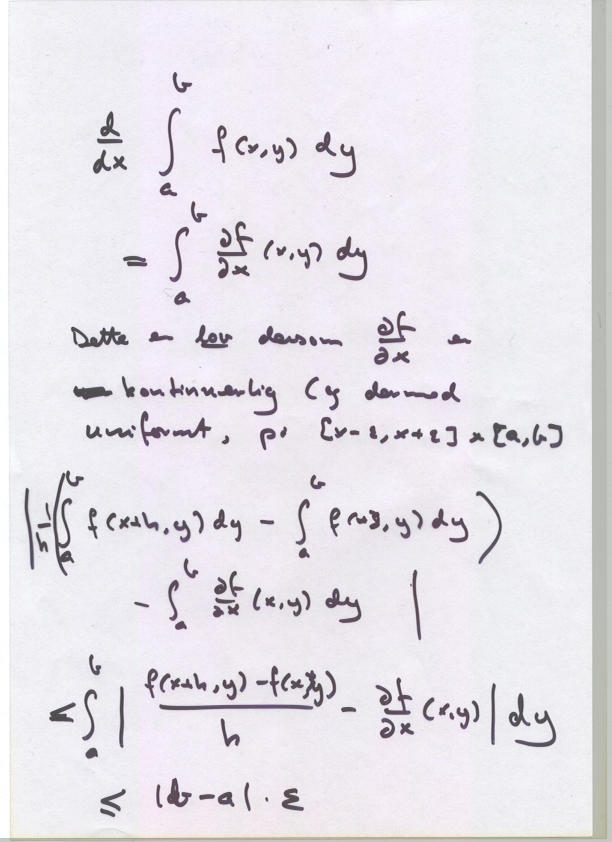 d/dx ∫_a^b f(x,y) dy
= ∫_a^b ∂f/∂x (x,y) dy
Dette er lov dersom ∂f/∂x er
kontinuerlig (og dermed
uniformt, på [x-ε, x+ε] × [a,b]
| 1/h ( ∫_a^b f(x+h,y) dy - ∫_a^b f(x,y) dy )
- ∫_a^b ∂f/∂x (x,y) dy |
≤ ∫_a^b | (f(x+h,y) - f(x,y))/h - ∂f/∂x (x,y) | dy
≤ |b-a| · ε